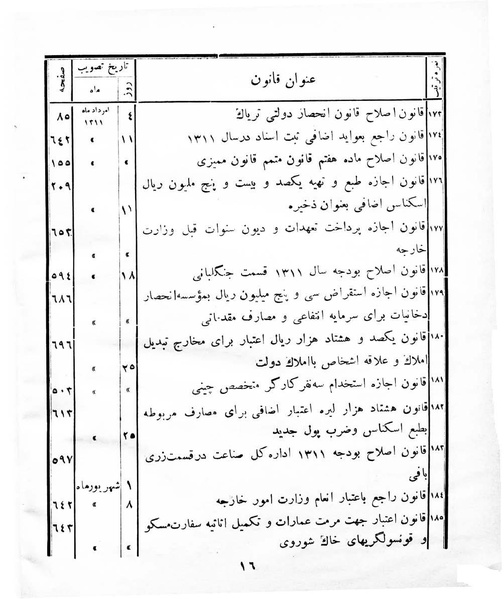 نمره ترتیب عنوان قانون تاریخ تصویب صفحه
روز ماه
۱۷۳ قانون اصلاح قانون انحصار دولتی تریاك ۴ امرداد ماه ۱۳۱۱ ۸۵
۱۷۴ قانون راجع بعواید اضافی ثبت اسناد درسال ۱۳۱۱ ۱۱ » ٦٤٢
۱۷۵ قانون اصلاح ماده هفتم قانون متمم قانون ممیزی » » ۱۵۵
۱۷٦ قانون اجازه طبع و تهیه یکصد و بیست و پنج ملیون ریال ۲۰۹
اسکناس اضافی بعنوان ذخیره ۱۱ »
۱۷۷ قانون اجازه پرداخت تعهدات و دیون سنوات قبل وزارت ٦٥٣
خارجه » »
۱۷۸ قانون اصلاح بودجه سال ۱۳۱۱ قسمت جنگلبانی ۱۸ » ٥٩٤
۱۷۹ قانون اجازه استقراض سی و پنج میلیون ریال بمؤسسه انحصار ٦٨٦
دخانیات برای سرمایه انتفاعی و مصارف مقدماتی » »
۱۸۰ قانون یکصد و هشتاد هزار ریال اعتبار برای مخارج تبدیل ٦٩٦
املاك و علاقه اشخاص باملاك دولت ۲۵ »
۱۸۱ قانون اجازه استخدام سه‌نفر کارگر متخصص چینی » » ٥٠٣
۱۸۲ قانون هشتاد هزار لیره اعتبار اضافی برای مصارف مربوطه ٦١٣
بطبع اسکناس وضرب پول جدید ۲۵ »
۱۸۳ قانون اصلاح بودجه ۱۳۱۱ اداره کل صناعت درقسمت‌زری ٥٩٧
بافی ۱ شهریورماه
۱۸٤ قانون راجع باعتبار انعام وزارت امور خارجه ۸ » ٦٤٢
۱۸۵ قانون اعتبار جهت مرمت عمارات و تکمیل اثاثیه سفارت‌مسکو ٦٤٣
و قونسولگریهای خاك شوروی » »
۱٦